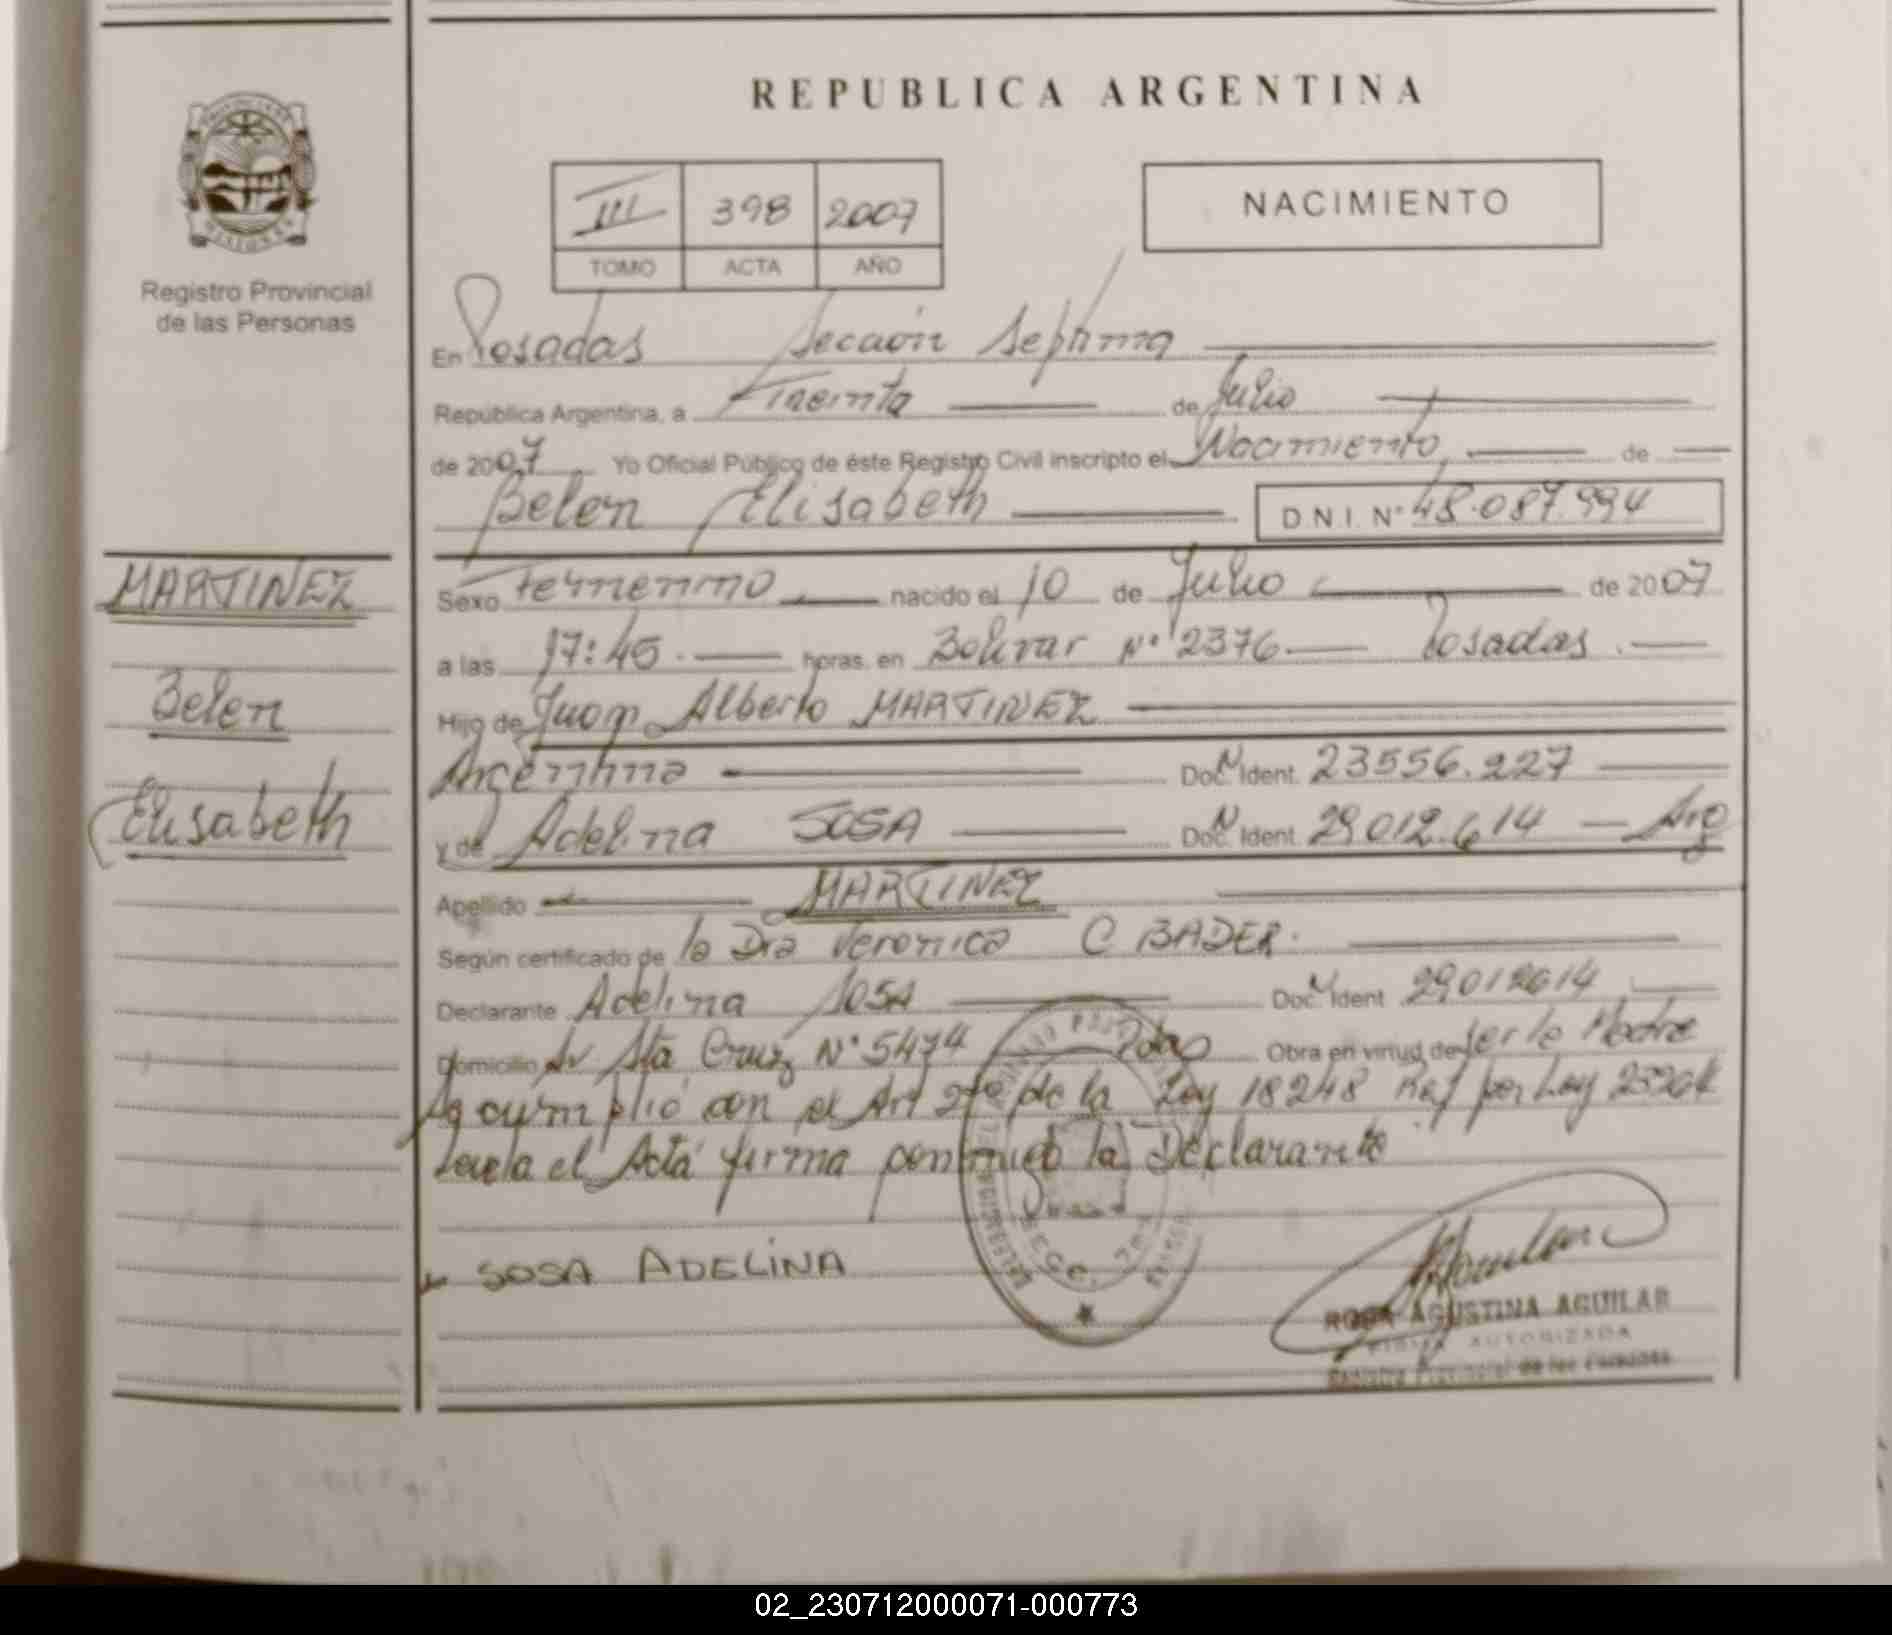 REPUBLICA ARGENTINA
PROVINCIA DE MISIONES
Registro Provincial
de las Personas
III 398 2007
TOMO ACTA AÑO
NACIMIENTO
En Posadas Sección Septima
República Argentina, a Treinta de Julio
de 2007 Yo Oficial Público de éste Registro Civil inscripto el Nacimiento de
Belen Elisabeth D.N.I. Nº 48.087.994
MARTINEZ
Belen
Elisabeth
Sexo Femenino nacido el 10 de Julio de 2007
a las 17:45 horas. en Bolivar Nº 2376 Posadas
Hijo de Juan Alberto MARTINEZ
Argentino Doc. N Ident. 23556.227
y de Adelina SOSA Doc. N Ident. 29.012.614 Arg
Apellido MARTINEZ
Según certificado de la Dra Veronica C BADER.
Declarante Adelina SOSA Doc. N Ident 29012614
Domicilio Av Sta Cruz Nº 5474 Pdas Obra en virtud de ser la Madre
cumplió con el Art de la Ley 18248 Ref por Ley
el Acta firma conmigo la Declarante
SOSA ADELINA
SECC. 7ma
ROSA AGUSTINA AGUILAR
FIRMA AUTORIZADA
Registro Provincial de las Personas
02_230712000071-000773